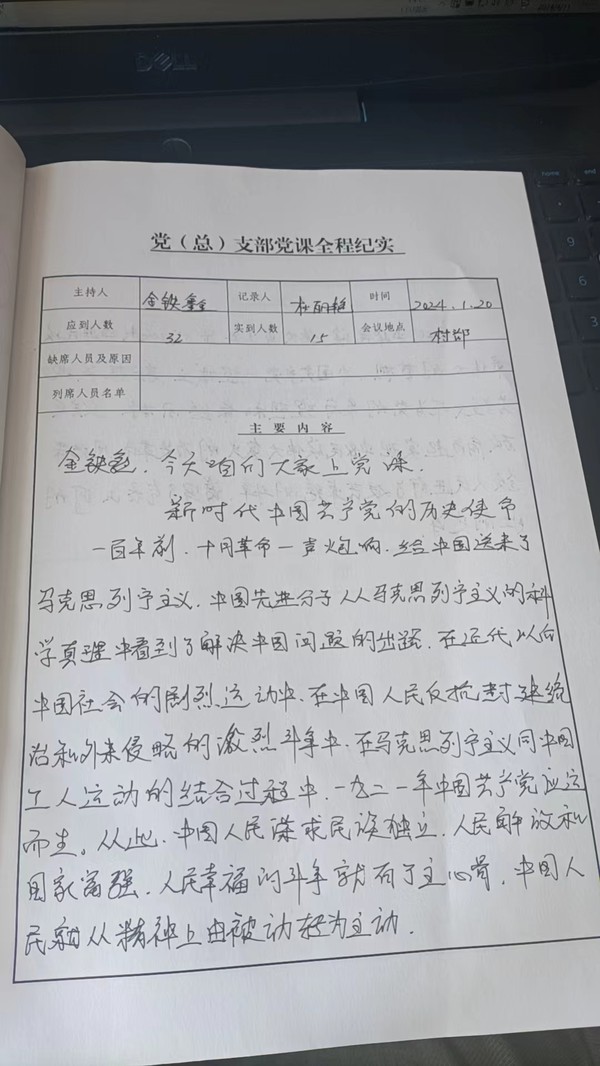 DELL
home
9
6
3
党（总）支部党课全程纪实
主持人 金铁 记录人 杜丽艳 时间 2024.1.20
应到人数 32 实到人数 15 会议地点 村部
缺席人员及原因
列席人员名单
主要内容
金铁 ，今天咱们大家上党课．
新时代中国共产党的历史使命
一百年前．十月革命一声炮响．给中国送来了
马克思列宁主义．中国先进分子从马克思列宁主义的科
学真理中看到了解决中国问题的出路．在近代以后
中国社会的剧烈运动中．在中国人民反抗封建统
治和外来侵略的激烈斗争中．在马克思列宁主义同中国
工人运动的结合过程中．一九二一年中国共产党应运
而生。从此．中国人民谋求民族独立．人民解放和
国家富强．人民幸福的斗争就有了主心骨．中国人
民就从精神上由被动转为主动．